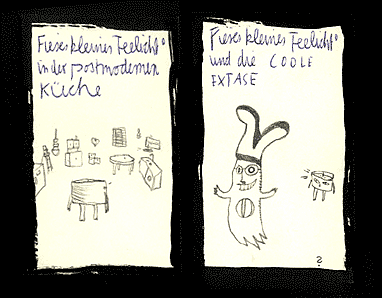 Fieses kleines Teelicht
in der postmodernen
Küche
Fieses kleines Teelicht
und die COOLE
EXTASE
?